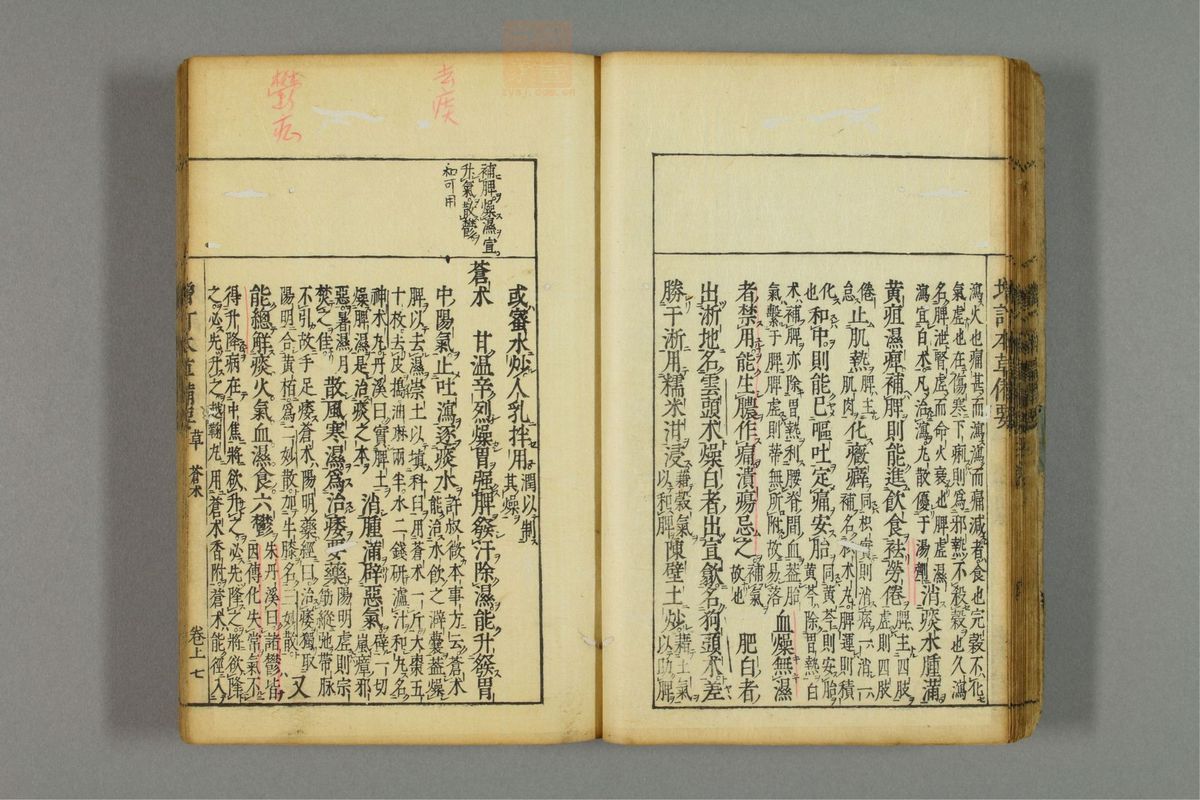 增訂本草備要
瀉火也痛甚而瀉瀉而痛減者食也完穀不化
氣虛也在傷寒下痢則為邪熱不殺穀也久瀉
名脾泄腎虛而命火衰也脾虛濕
瀉宜白朮凡治瀉丸散優于湯劑消痰水腫滿
黃疸濕痺補脾則能進飲食袪勞倦脾主四肢
虛則四肢
倦怠止肌熱脾主肌肉化癥癖同枳實則消痞一消一
補名枳朮丸脾運則積
化也和中則能已嘔吐定痛安胎同黃芩則安胎
黃芩除胃熱白
朮補脾亦除胃熱利腰脊間血蓋胎
氣繫于脾脾虛則蒂無所附故易落血燥無濕
者禁用能生膿作痛潰瘍忌之補氣
故也肥白者
出浙地名雲頭朮燥白者出宣歙名狗頭朮差
勝于浙用糯米泔浸藉穀氣
以和脾陳壁土炒藉土氣
以助脾
或蜜水炒人乳拌用潤以制
其燥
補脾燥濕宣
升氣散鬱
和可用
蒼朮 甘溫辛烈燥胃强脾發汗除濕能升發胃
中陽氣止吐瀉逐痰水許叔微本事方云蒼朮
能治水飲之澼囊蓋燥
脾以去濕崇土以塡科臼用蒼朮一斤大棗五
十枚去皮搗油麻兩半水二錢研瀘汁和丸名
神朮丸丹溪曰實脾土
燥脾濕是治痰之本消腫滿辟惡氣辟一切
嵐瘴邪
惡暑濕月
焚之佳散風寒濕爲治痿要藥陽明虛則宗
筋縱弛帶脉
不引故手足痿蒼朮陽明藥經曰治痿獨取
陽明合黃栢爲二妙散加牛膝名三妙散又
能總解痰火氣血濕食六鬱朱丹溪曰諸鬱皆
因傳化失常氣不
得升降病在中焦將欲升之必先降之將欲降
之必先升之越鞠丸用蒼朮香附蒼朮能徑入
草 蒼朮
卷上 七
去痰
鬱病